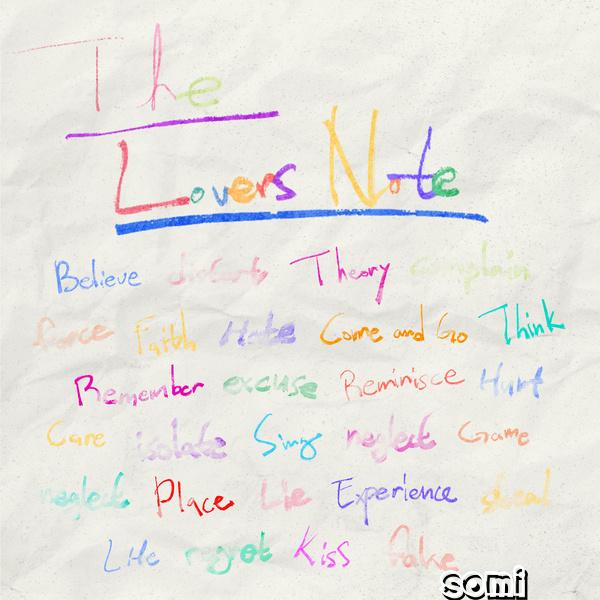 The
Lovers Note
Believe distort Theory complain
force Faith Hate Come and Go Think
Remember excuse Reminisce Hurt
Care isolate Sing neglect Game
neglect Place Lie Experience steal
Life regret Kiss fake
somi